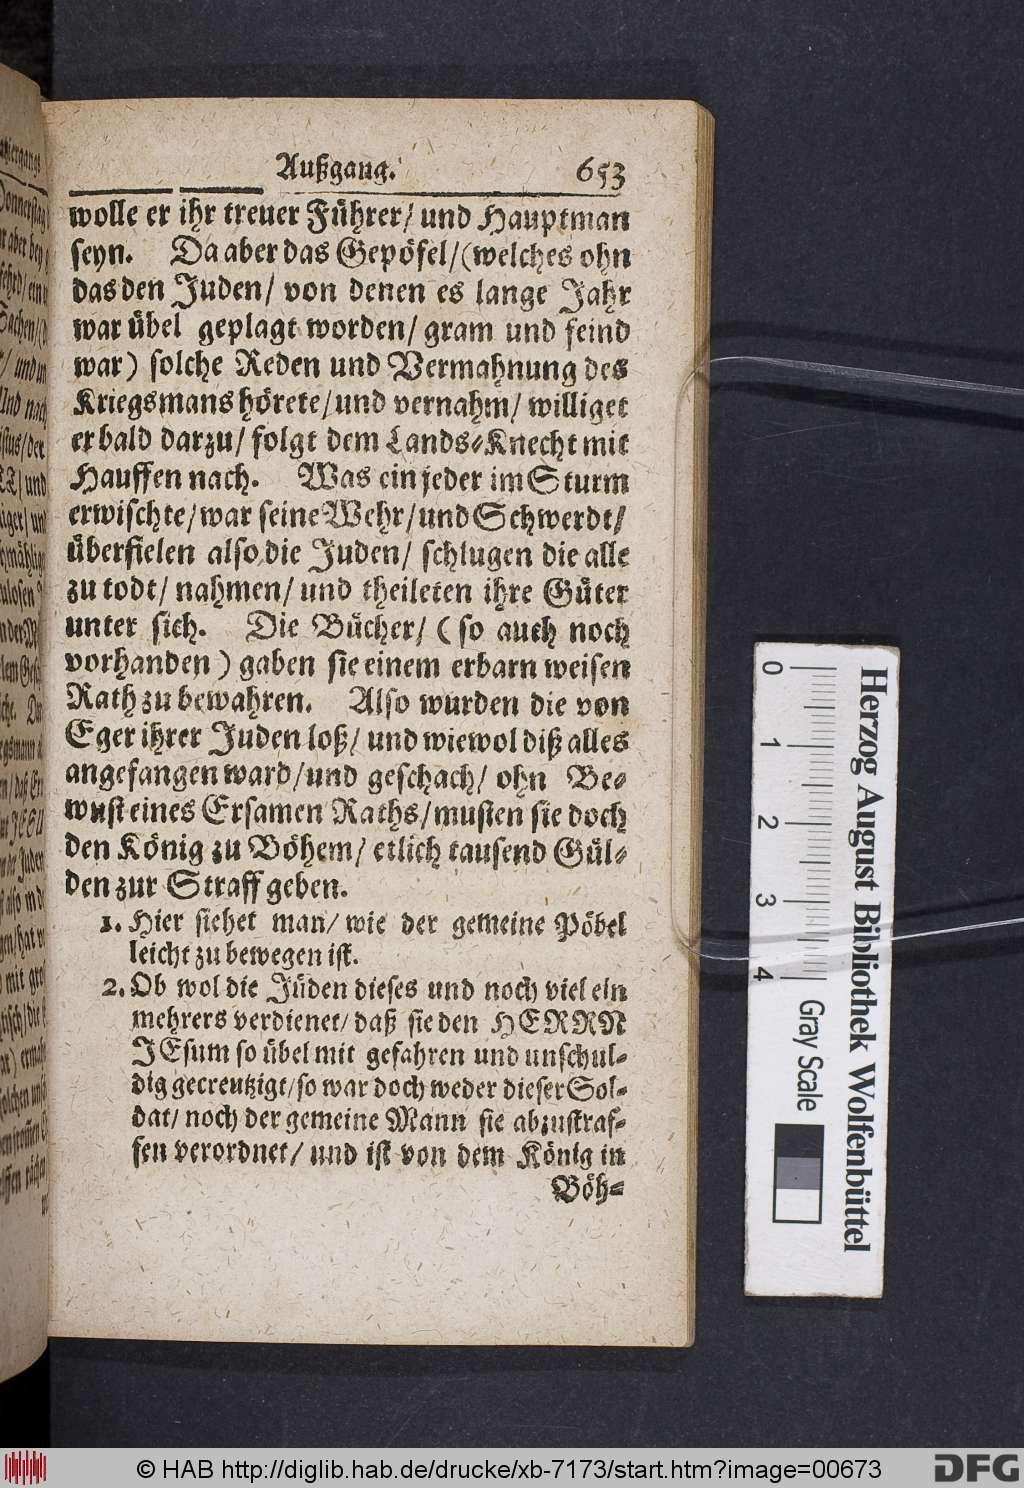 Außgang. 653
wolle er ihr treuer Führer/ und Hauptman
seyn. Da aber das Gepöfel/ (welches ohn
das den Juden/ von denen es lange Jahr
war übel geplagt worden/ gram und feind
war) solche Reden und Vermahnung des
Kriegsmans hörete/ und vernahm/ williget
er bald darzu/ folgt dem Lands-Knecht mit
Hauffen nach. Was ein jeder im Sturm
erwischte/ war seine Wehr/ und Schwerdt/
überfielen also die Juden/ schlugen die alle
zu todt/ nahmen/ und theileten ihre Güter
unter sich. Die Bücher/ (so auch noch
vorhanden) gaben sie einem erbarn weisen
Rath zu bewahren. Also wurden die von
Eger ihrer Juden loß/ und wiewol diß alles
angefangen ward/ und geschach/ ohn Be-
wust eines Ersamen Raths/ musten sie doch
den König zu Böhem/ etlich tausend Gül-
den zur Straff geben.
1. Hier siehet man/ wie der gemeine Pöbel
leicht zu bewegen ist.
2. Ob wol die Jüden dieses und noch viel ein
mehrers verdienet/ daß sie den HERRN
JEsum so übel mit gefahren und unschul-
dig gecreutzigt/ so war doch weder dieser Sol-
dat/ noch der gemeine Mann sie abzustraf-
fen verordnet/ und ist von dem König in
Böh-
0 1 2 3 4 Gray Scale
Herzog August Bibliothek Wolfenbüttel
© HAB http://diglib.hab.de/drucke/xb-7173/start.htm?image=00673
DFG